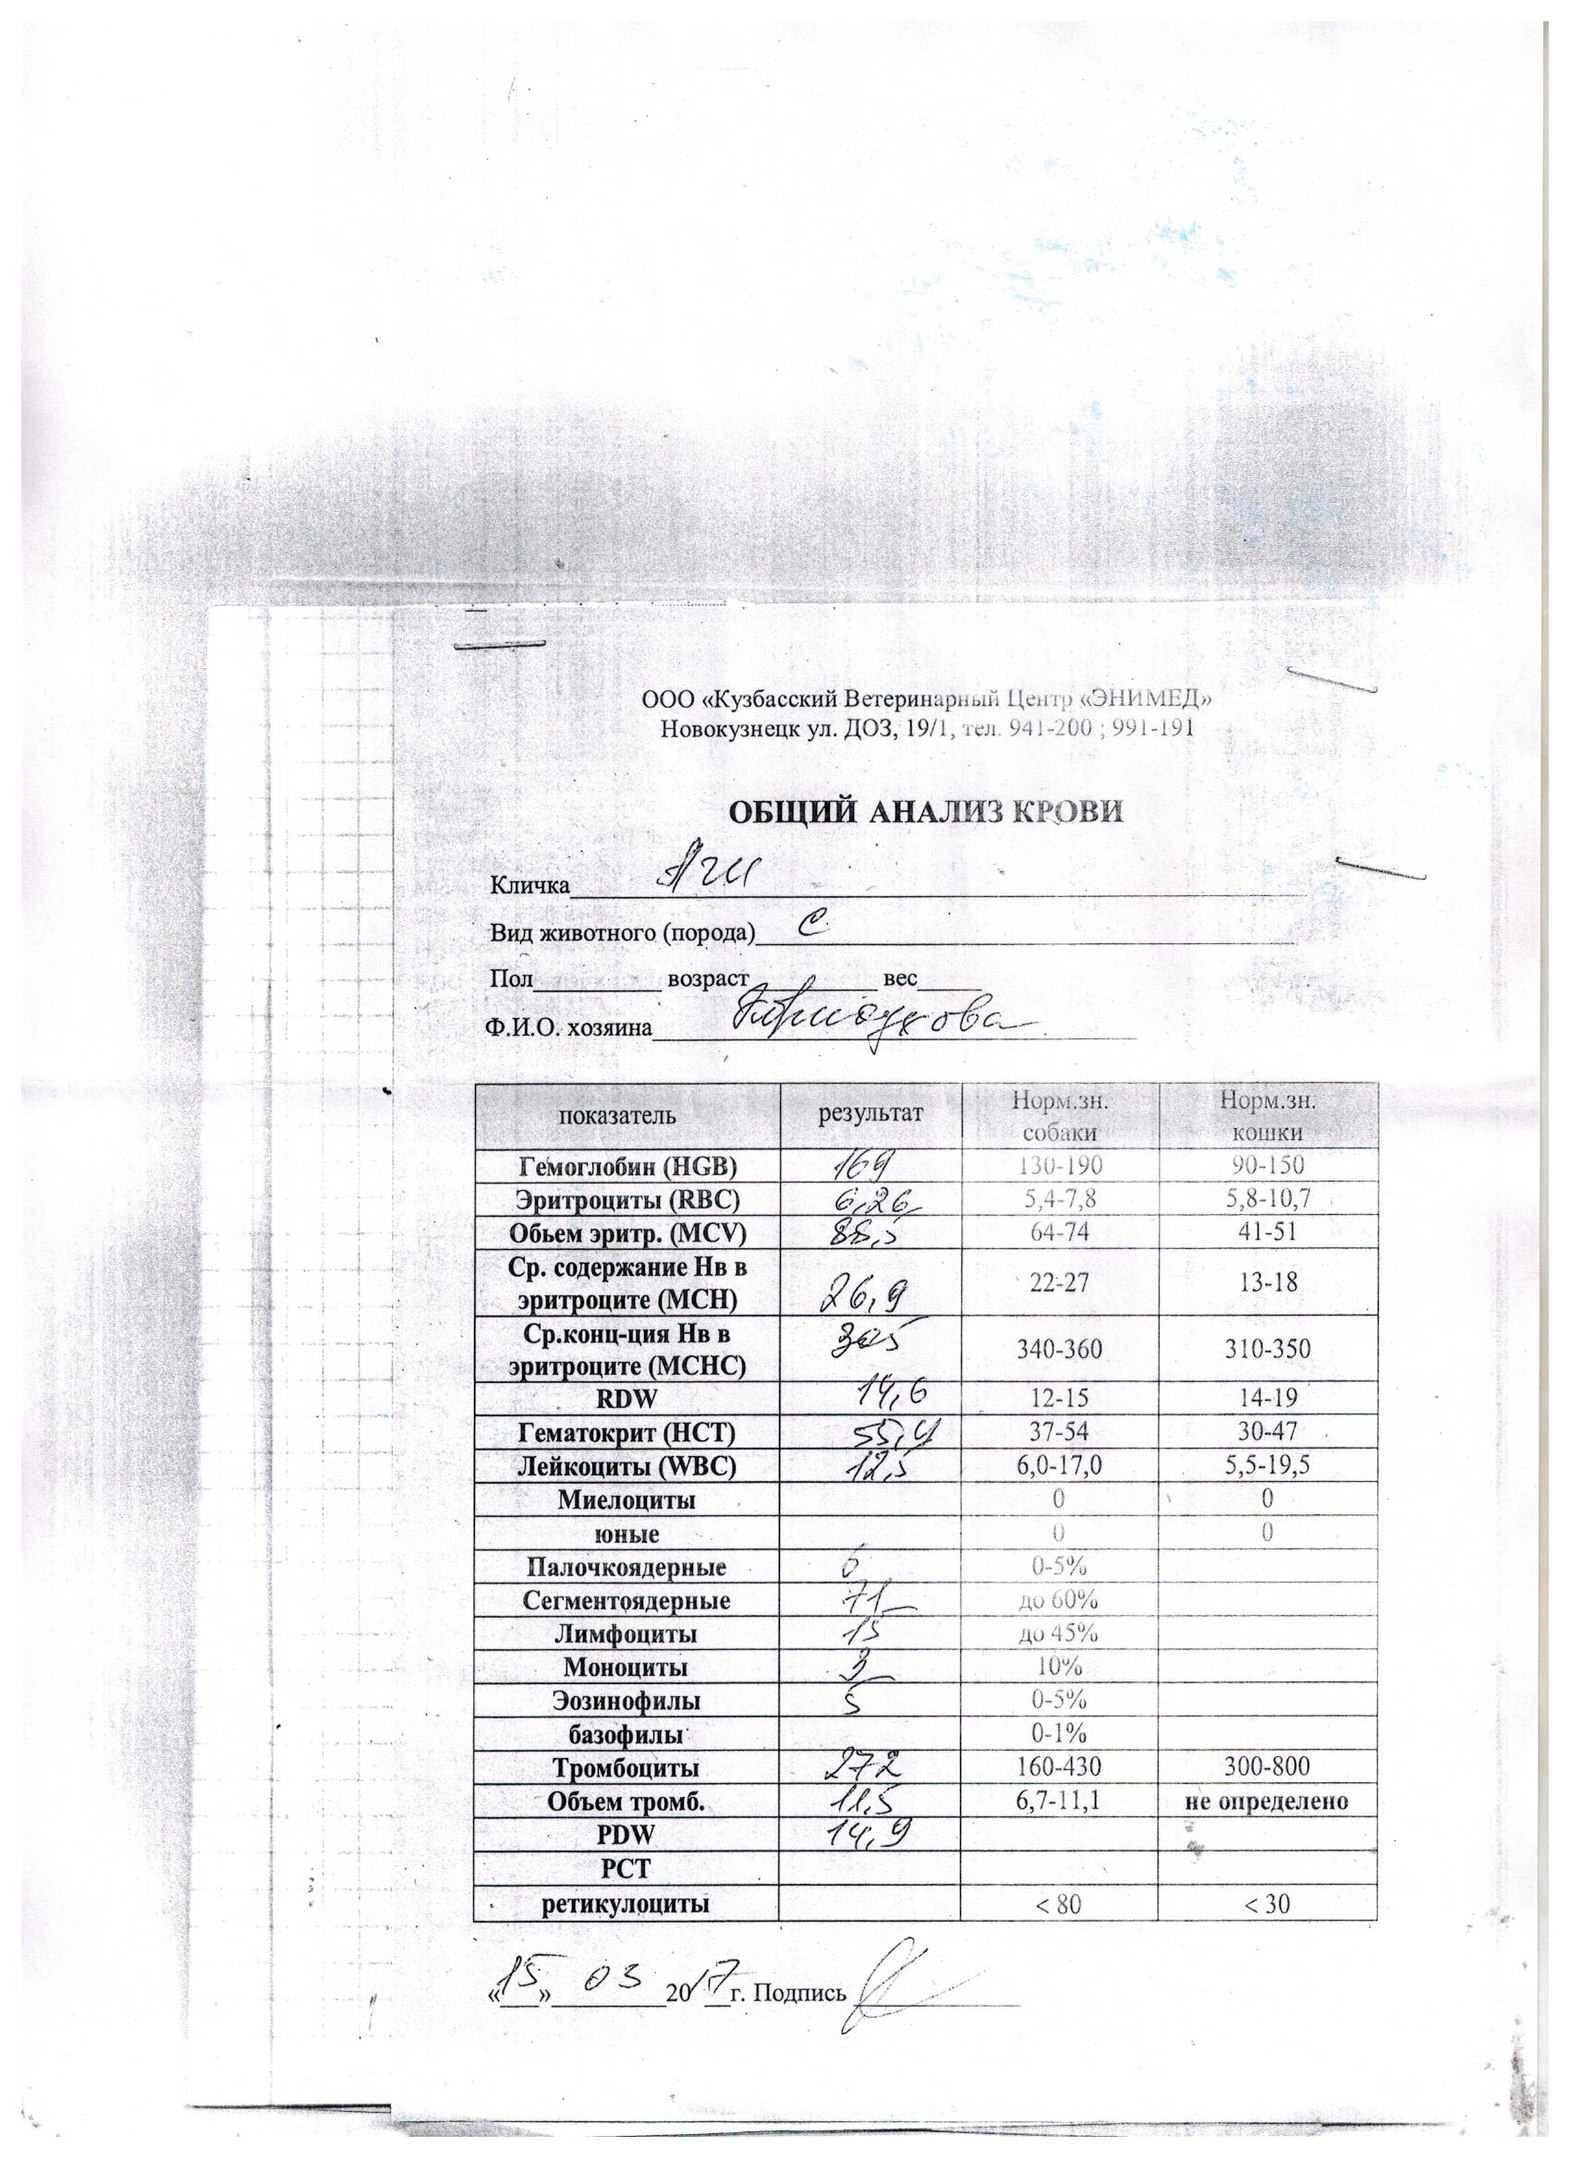 ООО «Кузбасский Ветеринарный Центр «ЭНИМЕД»
Новокузнецк ул. ДОЗ, 19/1, тел. 941-200 ; 991-191
ОБЩИЙ АНАЛИЗ КРОВИ
Кличка
Вид животного (порода) с
Пол возраст вес
Ф.И.О. хозяина
показатель результат Норм.зн. собаки Норм.зн. кошки
Гемоглобин (HGB) 169 130-190 90-150
Эритроциты (RBC) 6,26 5,4-7,8 5,8-10,7
Обьем эритр. (MCV) 88,5 64-74 41-51
Ср. содержание Нв в эритроците (МСН) 26,9 22-27 13-18
Ср.конц-ция Нв в эритроците (МСНС) 305 340-360 310-350
RDW 14,6 12-15 14-19
Гематокрит (НСТ) 55,4 37-54 30-47
Лейкоциты (WBC) 12,5 6,0-17,0 5,5-19,5
Миелоциты 0 0
юные 0 0
Палочкоядерные 6 0-5%
Сегментоядерные 71 до 60%
Лимфоциты 15 до 45%
Моноциты 3 10%
Эозинофилы 5 0-5%
базофилы 0-1%
Тромбоциты 272 160-430 300-800
Объем тромб. 11,5 6,7-11,1 не определено
PDW 14,9
РСТ
ретикулоциты < 80 < 30
«15» 03 2017 г. Подпись